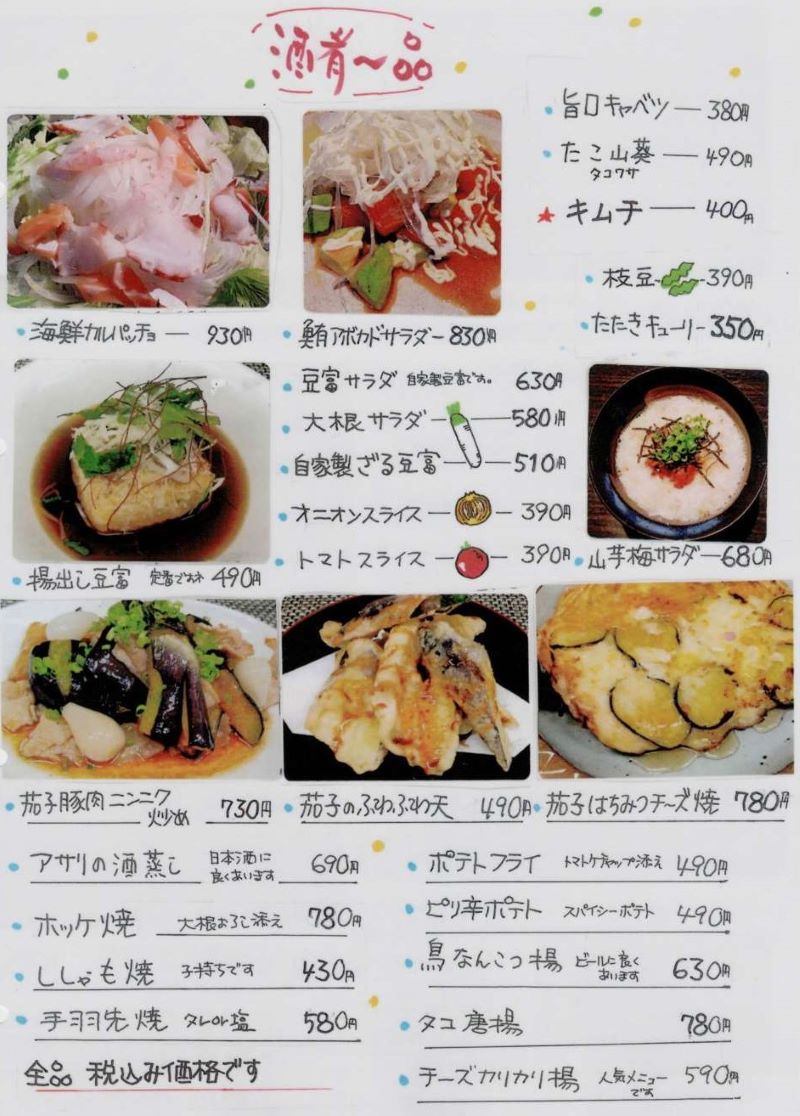 酒肴一品
旨口キャベツ — 380円
たこ山葵 — 490円
タコワサ
★ キムチ — 400円
枝豆 — 390円
たたきキューリ — 350円
海鮮カルパッチョ — 930円
鮪アボカドサラダー 830円
豆富サラダ 自家製豆富です。 630円
大根サラダ — 580円
自家製ざる豆富 — 510円
オニオンスライス — 390円
トマトスライス — 390円
揚出し豆富 定番ですネ 490円
山芋梅サラダ — 680円
茄子豚肉ニンニク炒め 730円
茄子のふわふわ天 490円
茄子はちみつチーズ焼 780円
アサリの酒蒸し 日本酒に良くあいます 690円
ホッケ焼 大根おろし添え 780円
ししゃも焼 子持ちです 430円
手羽先焼 タレor塩 580円
全品 税込み価格です
ポテトフライ トマトケチャップ添え 490円
ピリ辛ポテト スパイシーポテト 490円
鳥なんこつ揚 ビールに良くあいます 630円
タコ唐揚 780円
チーズカリカリ揚 人気メニューです 590円